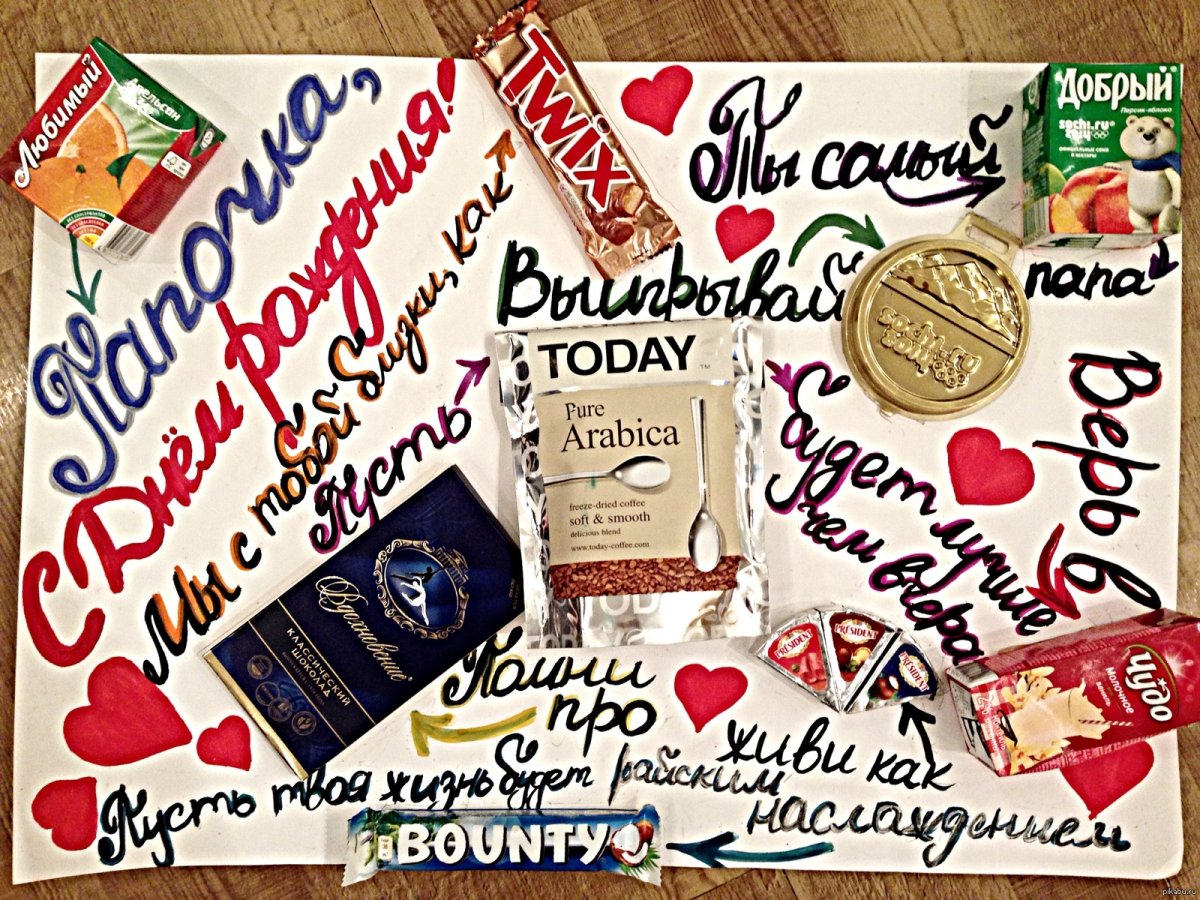 Любимый
Апельсин
Папочка,
С Днём рождения!
Мы с тобой близки, как
Twix
Ты самый
Добрый
Персик-яблоко
sochi.ru
2014
папа
Выигрывай
sochi.ru
2014
Пусть
TODAY
Pure
Arabica
freeze-dried coffee
soft & smooth
delicious blend
www.today-coffee.com
TODAY
будет лучше
чем вчера
Верь в
Чудо
Молочное
Помни
про
Вдохновение
КЛАССИЧЕСКИЙ
ШОКОЛАД
живи как
PRESIDENT
PRESIDENT
PRESIDENT
Пусть твоя жизнь будет райским
наслаждением
BOUNTY
pikabu.ru